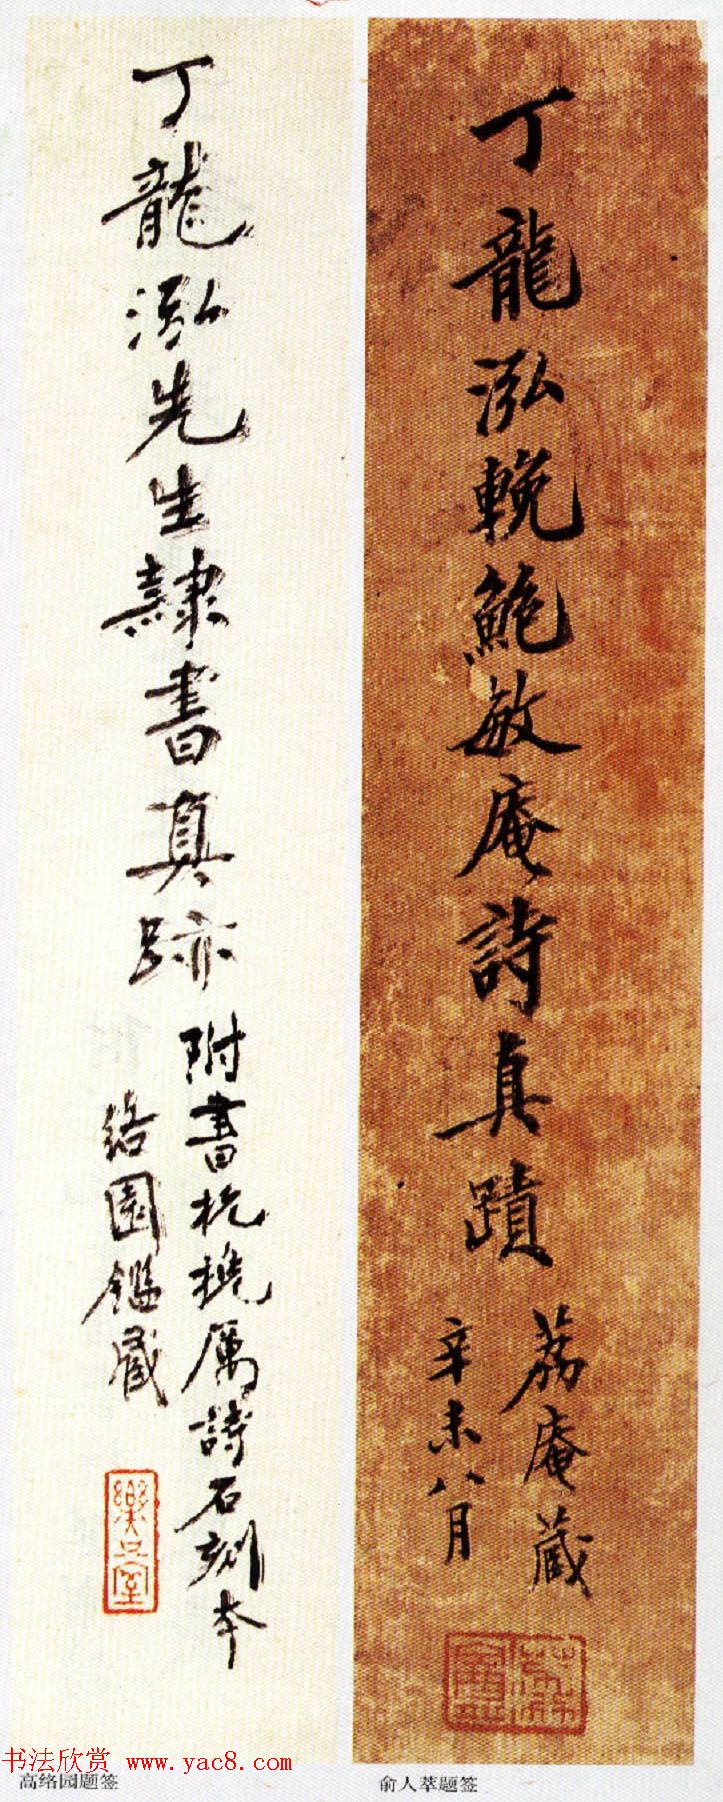 丁龍泓輓鮑敏庵詩真蹟
荔庵藏
辛未八月
丁龍泓先生隸書真跡
附書杭挽厲詩石刻本
絡園鑑藏
樂只室
书法欣赏 www.yac8.com
高络园题签
俞人萃题签